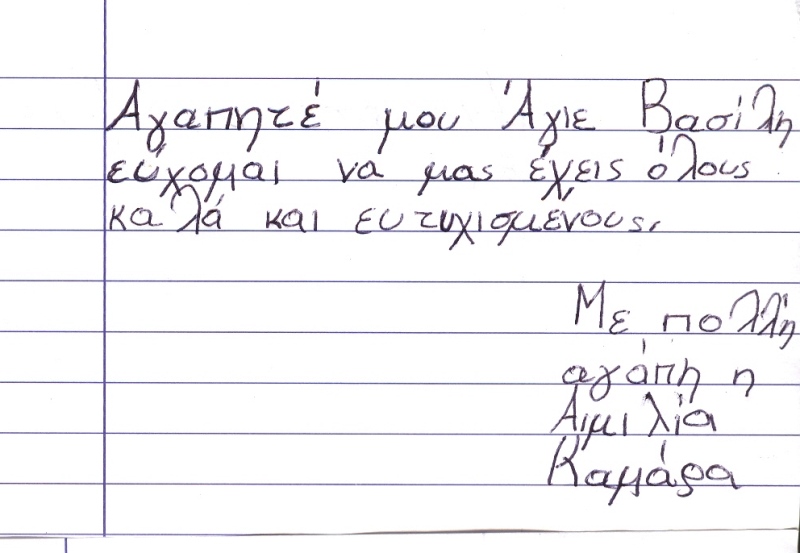 Αγαπητέ μου Άγιε Βασίλη
εύχομαι να μας έχεις όλους
καλά και ευτυχισμένους.
Με πολλη
αγάπη η
Αιμιλία
Καμάρα